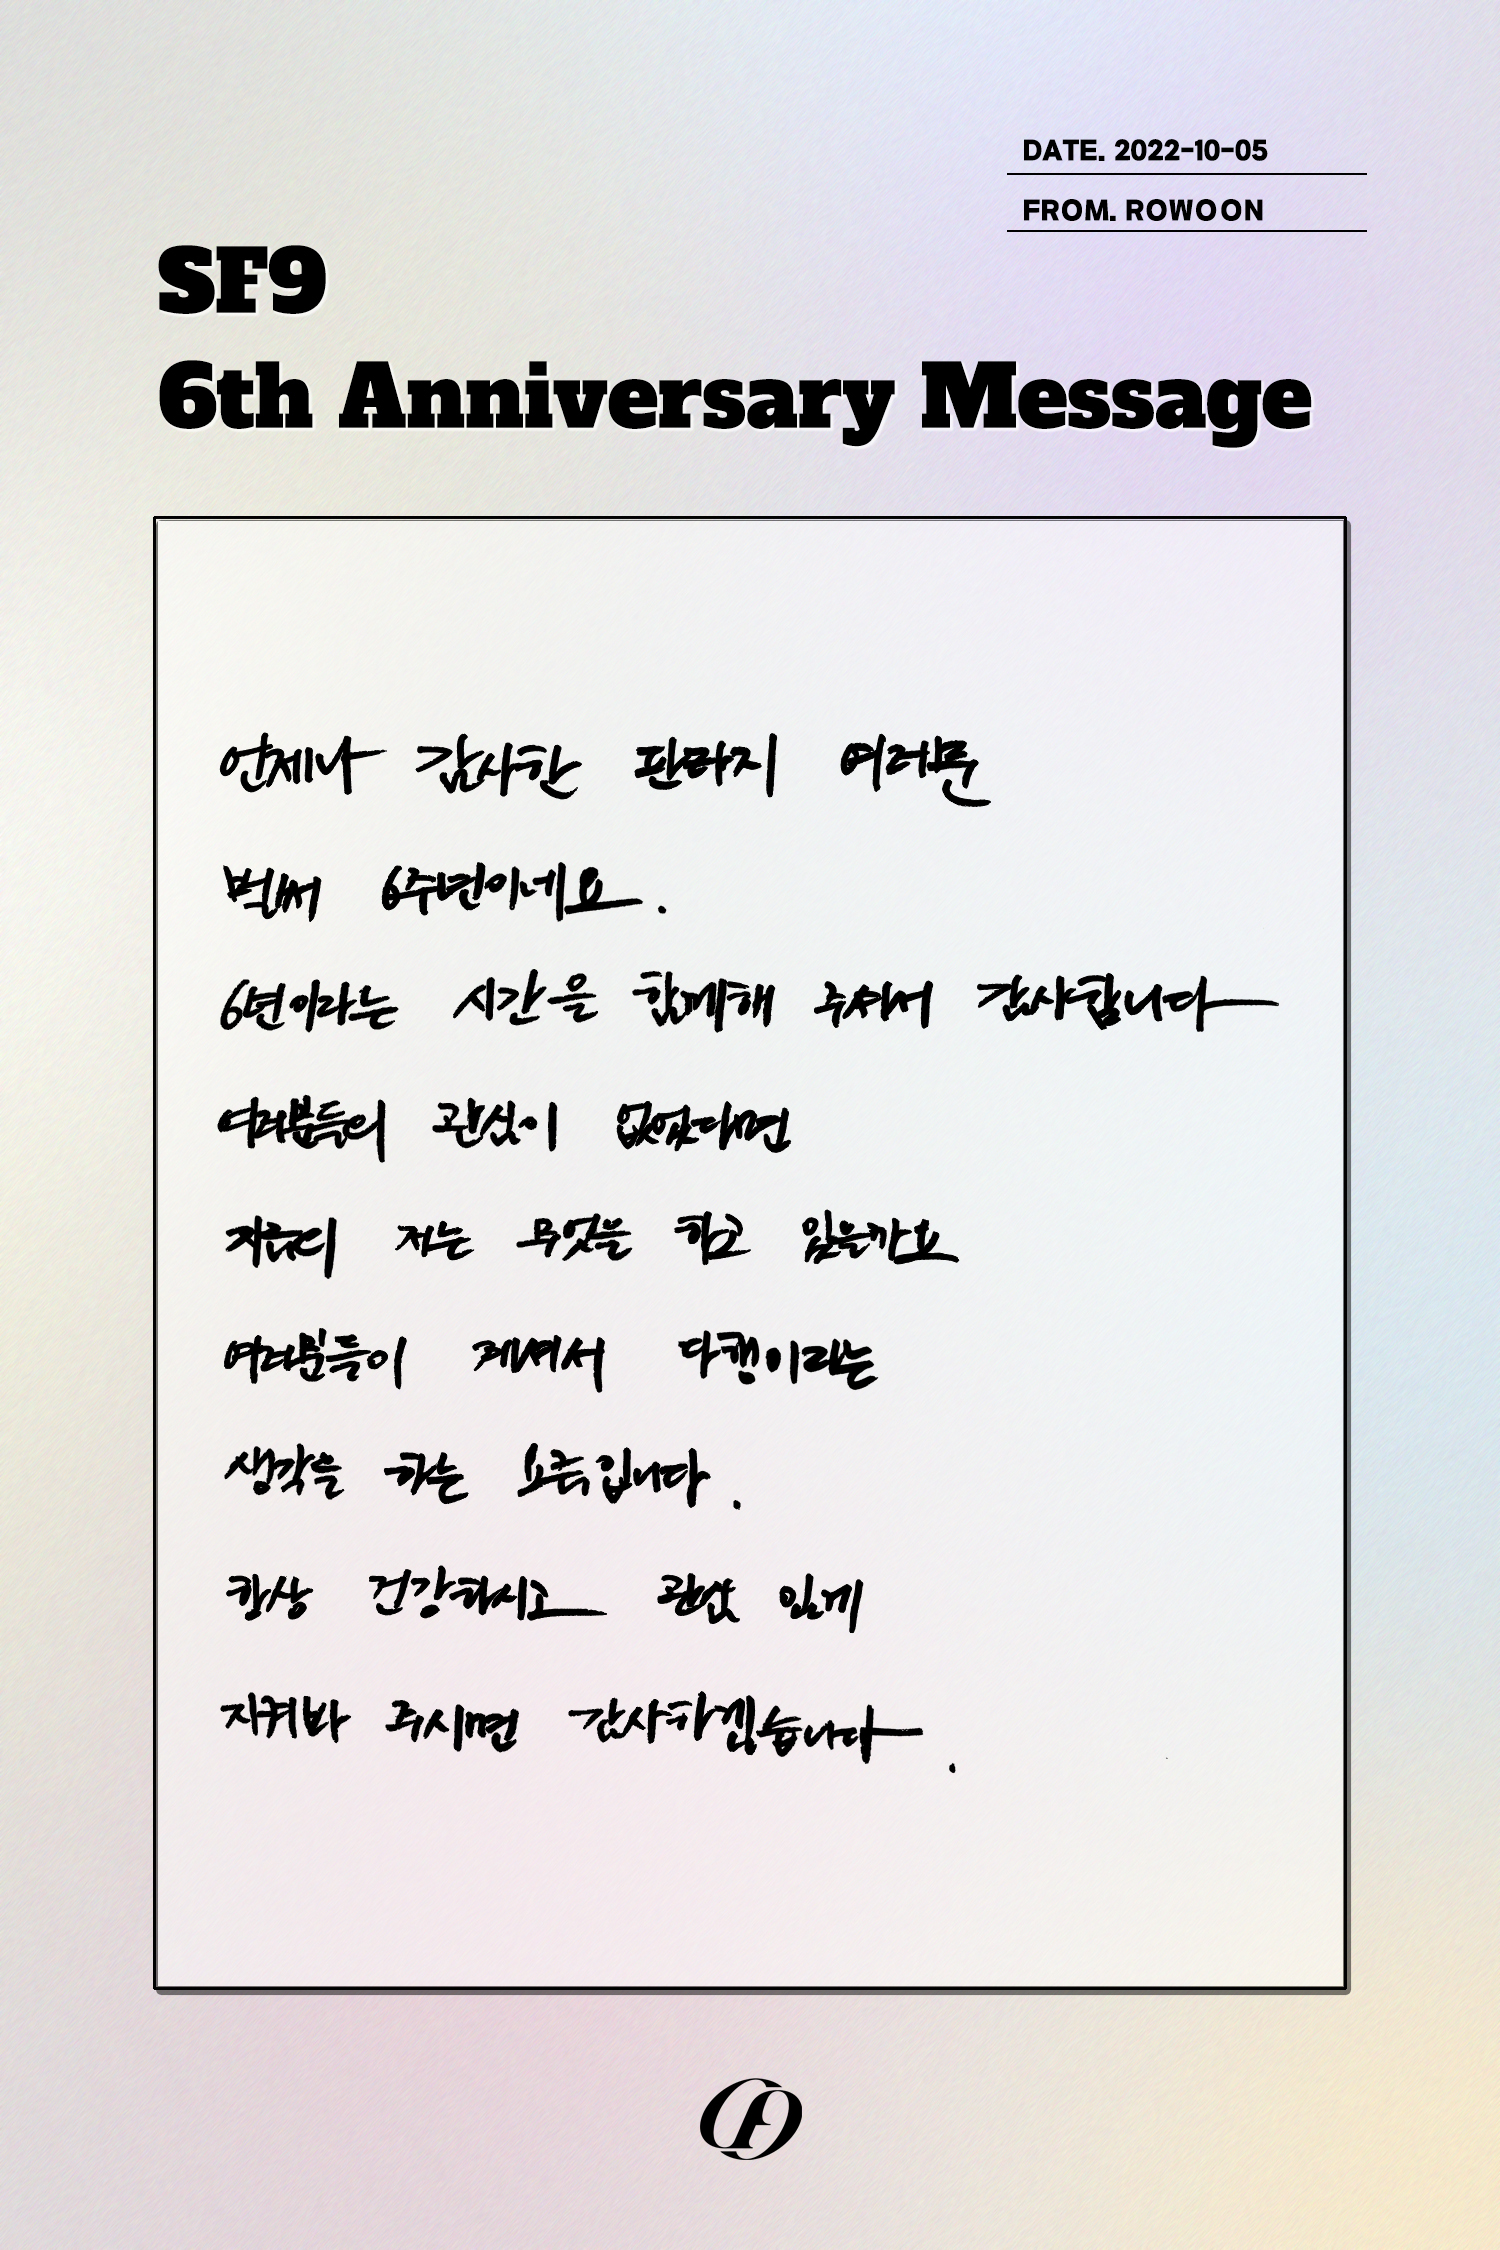 DATE. 2022-10-05
FROM. ROWOON
SF9
6th Anniversary Message
언제나 감사한 판타지 여러분
벌써 6주년이네요.
6년이라는 시간을 함께해 주셔서 감사합니다
여러분들의 관심이 없었다면
지금쯤 저는 무엇을 하고 있을까요
여러분들이 계셔서 다행이라는
생각을 하는 요즘입니다.
항상 건강하시고 관심 있게
지켜봐 주시면 감사하겠습니다.